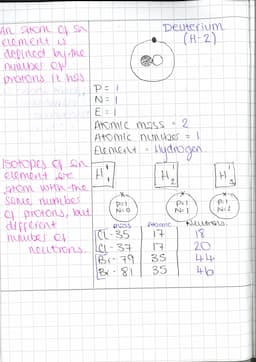 An atom of an
element is
defined by the
number of
protons it has
Deuterium
(H-2)
P = 1
N = 1
E = 1
Atomic mass = 2
Atomic number = 1
Element = Hydrogen
Isotopes of an
element are
atom with the
same number
of protons, but
different
number of
neutrons.
H 1 1
H 1 2
H 1 3
P=1
N=0
P=1
N=1
P=1
N=2
mass Atomic Neutrons
Cl - 35 17 18
Cl - 37 17 20
Br - 79 35 44
Br - 81 35 46